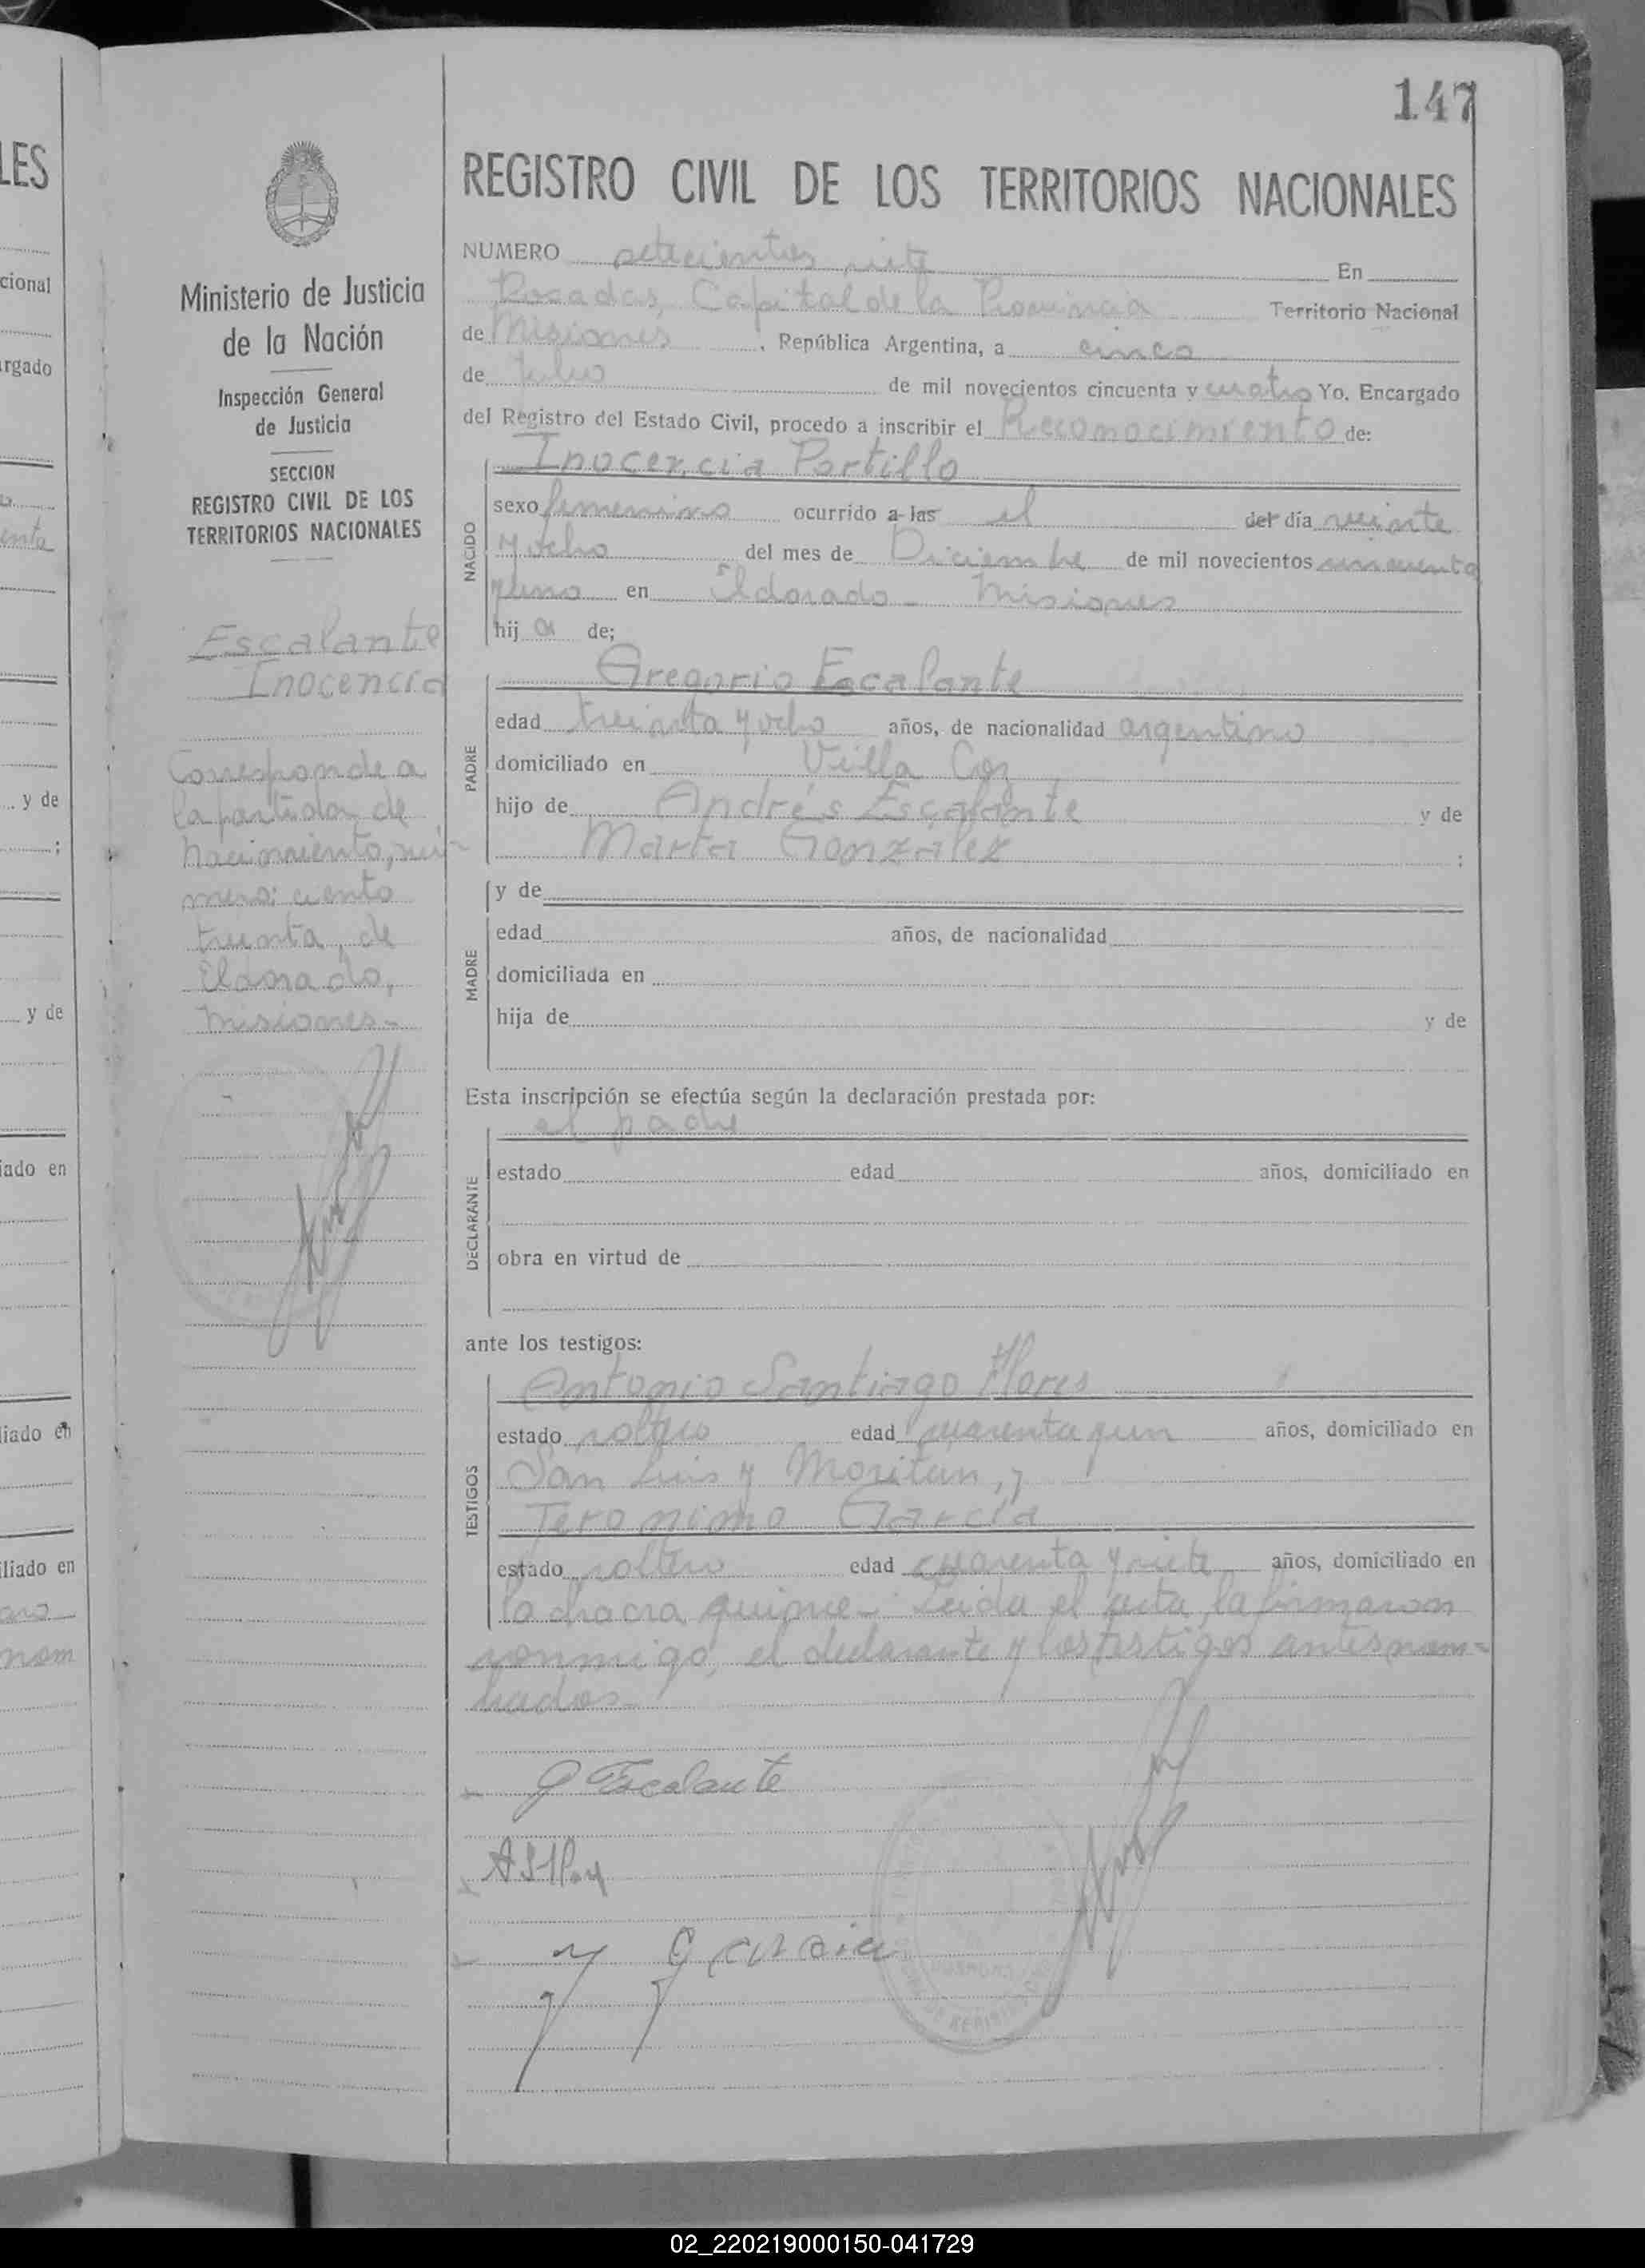 147
REGISTRO CIVIL DE LOS TERRITORIOS NACIONALES
Ministerio de Justicia
de la Nación
Inspección General
de Justicia
SECCION
REGISTRO CIVIL DE LOS
TERRITORIOS NACIONALES
Escalante
Inocencia
Corresponde a
la partida de
nacimiento, nú-
mero: ciento
treinta, de
Eldorado,
Misiones-
NUMERO setecientos siete En
Posadas, Capital de la Provincia Territorio Nacional
de Misiones, República Argentina, a cinco
de Julio de mil novecientos cincuenta y cuatro Yo. Encargado
del Registro del Estado Civil, procedo a inscribir el Reconocimiento de:
Inocencia Portillo
NACIDO
sexo femenino ocurrido a las el del día veinte
y ocho del mes de Diciembre de mil novecientos cincuenta
y uno en Eldorado - Misiones
hij a de;
PADRE
Gregorio Escalante
edad treinta y ocho años, de nacionalidad argentino
domiciliado en Villa Coz
hijo de Andrés Escalante y de
Marta González ;
MADRE
y de
edad años, de nacionalidad
domiciliada en
hija de y de
Esta inscripción se efectúa según la declaración prestada por:
el padre
DECLARANTE
estado edad años, domiciliado en
obra en virtud de
ante los testigos:
TESTIGOS
Antonio Santiago Flores
estado soltero edad cuarenta y un años, domiciliado en
San Luis y Moritán, y
Jeronimo García
estado soltero edad cuarenta y siete años, domiciliado en
la chacra quince - Leida el acta, la firmaron
conmigo, el declarante y los testigos antes nom=
brados-
G Escalante
J Garcia
LES
cional
rgado
enta
y de
;
y de
iado en
liado en
iliado en
nom
02_220219000150-041729